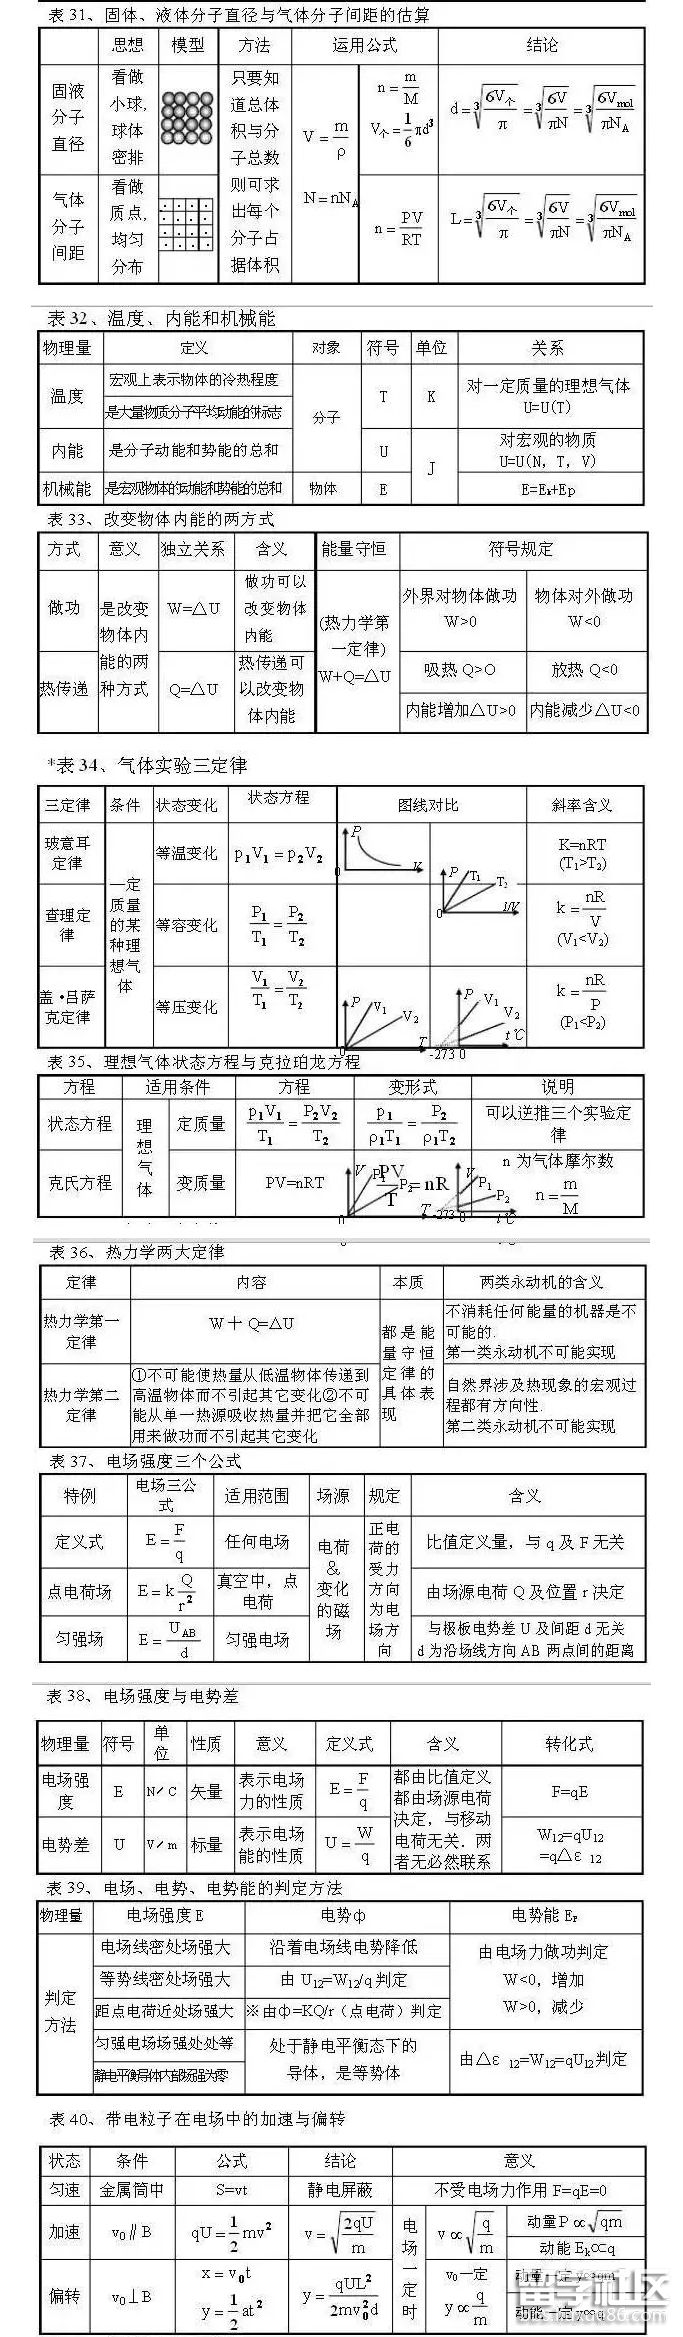 表 31、固体、液体分子直径与气体分子间距的估算
思想 模型 方法 运用公式 结论
固液分子直径 看做小球,球体密排 只要知道总体积与分子总数则可求出每个分子占据体积 V=m/ρ N=nN_A n=m/M V个=1/6πd³ d=³√(6V个/π)=³√(6V/πN)=³√(6Vmol/πN_A)
气体分子间距 看做质点,均匀分布 n=PV/RT L=³√(6V个/π)=³√(6V/πN)=³√(6Vmol/πN_A)
表 32、温度、内能和机械能
物理量 定义 对象 符号 单位 关系
温度 宏观上表示物体的冷热程度 分子 T K 对一定质量的理想气体 U=U(T)
是大量物质分子平均动能的标志
内能 是分子动能和势能的总和 U J 对宏观的物质 U=U(N, T, V)
机械能 是宏观物体的动能和势能的总和 物体 E E=Ek+Ep
表 33、改变物体内能的两方式
方式 意义 独立关系 含义 能量守恒 符号规定
做功 是改变物体内能的两种方式 W=△U 做功可以改变物体内能 (热力学第一定律) W+Q=△U 外界对物体做功 W>0 物体对外做功 W<0
热传递 Q=△U 热传递可以改变物体内能 吸热 Q>O 放热 Q<0
内能增加△U>0 内能减少△U<0
*表 34、气体实验三定律
三定律 条件 状态变化 状态方程 图线对比 斜率含义
玻意耳定律 一定质量的某种理想气体 等温变化 p₁V₁=p₂V₂ P V 0 P T₁ T₂ 1/V 0 K=nRT (T₁>T₂)
查理定律 等容变化 P₁/T₁=P₂/T₂ k=nR/V (V₁<V₂)
盖·吕萨克定律 等压变化 V₁/T₁=V₂/T₂ P V₁ V₂ T 0 P V₁ V₂ t℃ -273 0 k=nR/P (P₁<P₂)
表 35、理想气体状态方程与克拉珀龙方程
方程 适用条件 方程 变形式 说明
状态方程 理想气体 定质量 p₁V₁/T₁=P₂V₂/T₂ p₁/ρ₁T₁=P₂/ρ₁T₂ 可以逆推三个实验定律
克氏方程 变质量 PV=nRT PV/T=nR n 为气体摩尔数 n=m/M
V P₁ P₂ T 0 V P₁ P₂ t℃ -273 0
表 36、热力学两大定律
定律 内容 本质 两类永动机的含义
热力学第一定律 W＋Q=△U 都是能量守恒定律的具体表现 不消耗任何能量的机器是不可能的. 第一类永动机不可能实现
热力学第二定律 ①不可能使热量从低温物体传递到高温物体而不引起其它变化②不可能从单一热源吸收热量并把它全部用来做功而不引起其它变化 自然界涉及热现象的宏观过程都有方向性. 第二类永动机不可能实现
表 37、电场强度三个公式
特例 电场三公式 适用范围 场源 规定 含义
定义式 E=F/q 任何电场 电荷&变化的磁场 正电荷的受力方向为电场方向 比值定义量，与 q 及 F 无关
点电荷场 E=kQ/r² 真空中，点电荷 由场源电荷 Q 及位置 r 决定
匀强场 E=U_AB/d 匀强电场 与极板电势差 U 及间距 d 无关
d 为沿场线方向 AB 两点间的距离
表 38、电场强度与电势差
物理量 符号 单位 性质 意义 定义式 含义 转化式
电场强度 E N/C 矢量 表示电场力的性质 E=F/q 都由比值定义都由场源电荷决定，与移动电荷无关．两者无必然联系 F=qE
电势差 U V/m 标量 表示电场能的性质 U=W/q W₁₂=qU₁₂ =q△ε ₁₂
表 39、电场、电势、电势能的判定方法
物理量 电场强度 E 电势φ 电势能 E_P
判定方法 电场线密处场强大 沿着电场线电势降低 由电场力做功判定 W<0，增加 W>0，减少
等势线密处场强大 由 U₁₂=W₁₂/q 判定
距点电荷近处场强大 ※由φ=KQ/r（点电荷）判定
匀强电场场强处处等 处于静电平衡态下的导体，是等势体 由△ε ₁₂=W₁₂=qU₁₂判定
静电平衡导体内部场强为零
表 40、带电粒子在电场中的加速与偏转
状态 条件 公式 结论 意义
匀速 金属筒中 S=vt 静电屏蔽 不受电场力作用 F=qE=0
加速 v₀∥B qU=1/2mv² v=√(2qU/m) 电场一定时 v∝√(q/m) 动量 P∝√qm
动能 E_k∝q
偏转 v₀⊥B x=v₀t y=1/2at² y=qUL²/2mv₀²d v₀一定 y∝q/m 动量一定 y∝qm
动能一定 y∝q
留学社区